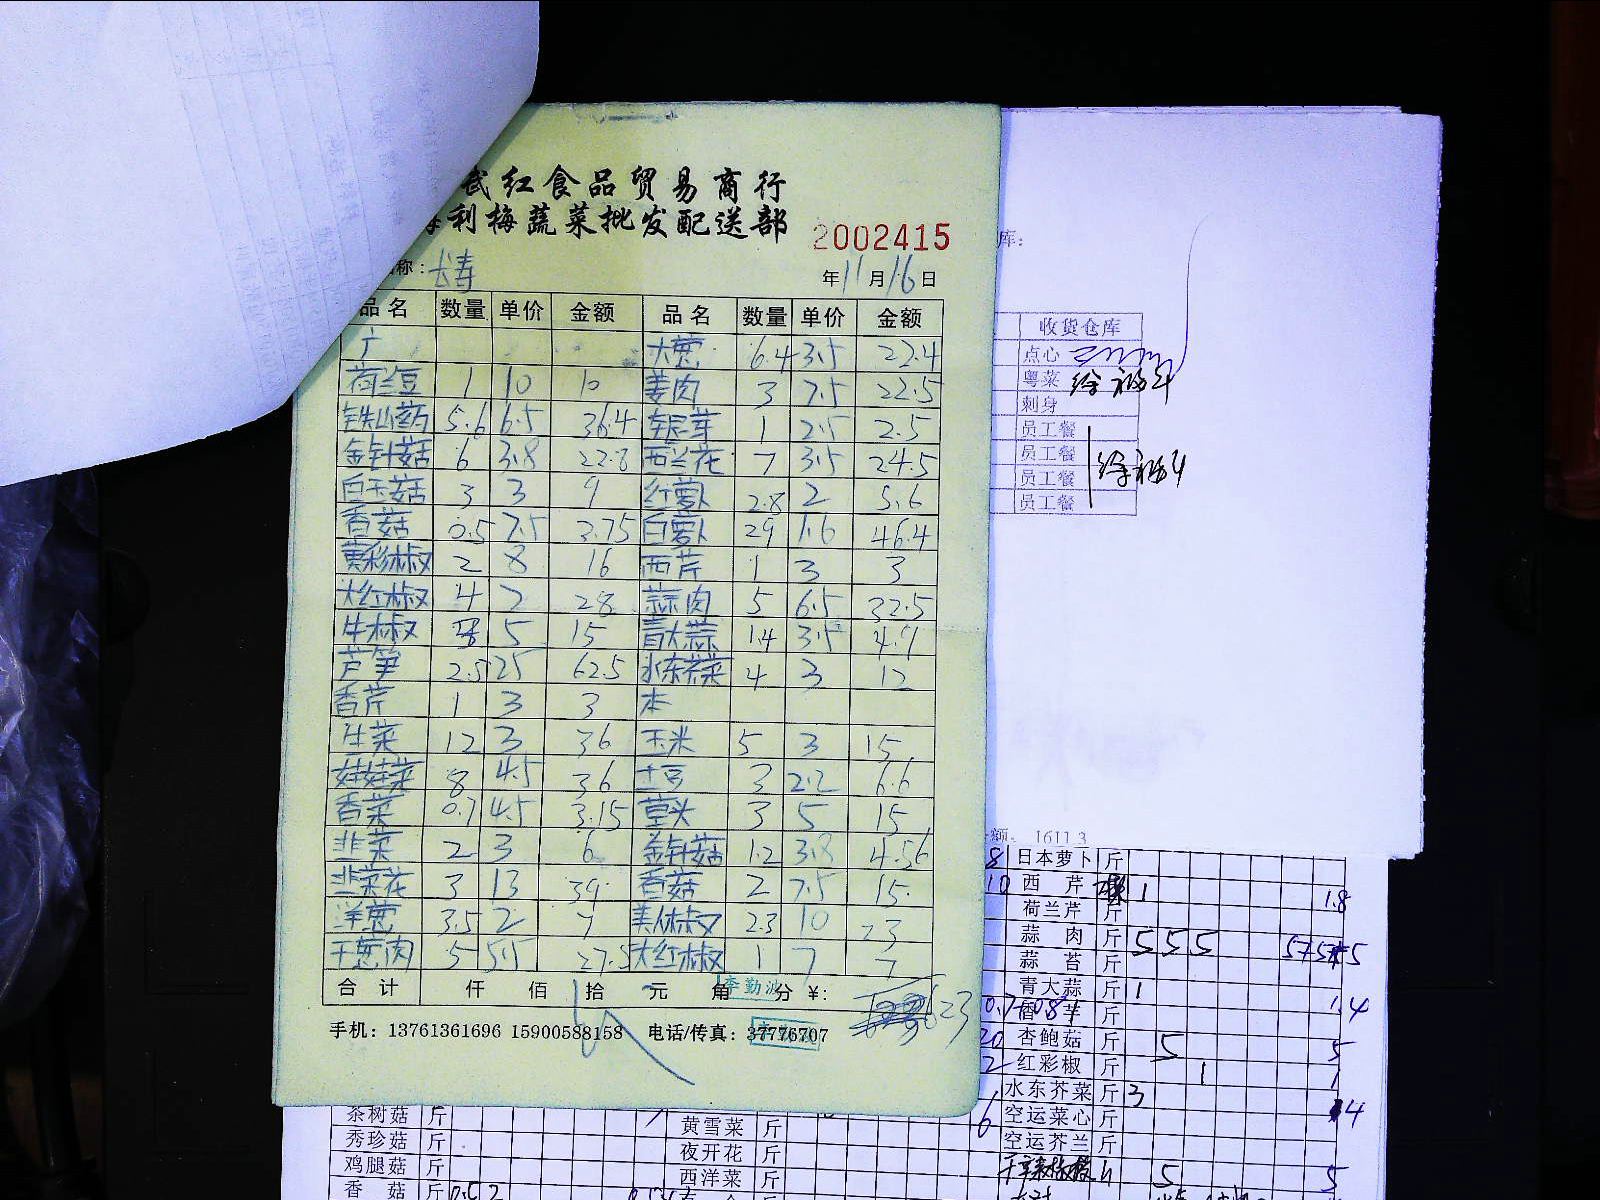 武红食品贸易商行
利梅蔬菜批发配送部
2002415
称：长寿 年11月16日
品名 数量 单价 金额 品名 数量 单价 金额
广 大葱 6.4 3.5 22.4
荷兰豆 1 10 10 姜肉 3 7.5 22.5
铁山药 5.6 6.5 36.4 银芽 1 2.5 2.5
金针菇 6 3.8 22.8 西兰花 7 3.5 24.5
白玉菇 3 3 9 红萝卜 2.8 2 5.6
香菇 0.5 7.5 3.75 白萝卜 29 1.6 46.4
黄彩椒 2 8 16 西芹 1 3 3
大红椒 4 7 28 蒜肉 5 6.5 32.5
牛椒 3 5 15 青大蒜 1.4 3.5 4.9
芦笋 2.5 25 62.5 水东芥菜 4 3 12
香芹 1 3 3 本
生菜 12 3 36 玉米 5 3 15
娃娃菜 8 4.5 36 土豆 3 2.2 6.6
香菜 0.7 4.5 3.15 草头 3 5 15
韭菜 2 3 6 金针菇 1.2 3.8 4.56
韭菜花 3 13 39 香菇 2 7.5 15
洋葱 3.5 2 7 美人椒 2.3 10 23
干葱肉 5 5.5 27.5 大红椒 1 7 7
合计 仟 佰 拾 元 角 分 ¥: 623
李勤波
手机：13761361696 15900588158 电话/传真：37776707
库：
收货仓库
点心
粤菜
刺身
员工餐
员工餐
员工餐
员工餐
额：1611.3
8 日本萝卜 斤
10 西芹 1 1.8
荷兰芹 斤
蒜肉 斤 5 5 5
蒜苔 斤
青大蒜 斤 1 1.4
香芋 斤
20 杏鲍菇 斤 5 5
2 红彩椒 斤 1 1
水东芥菜 斤 3 4
6 空运菜心 斤
空运芥兰 斤
5 5
茶树菇 斤 黄雪菜 斤
秀珍菇 斤 夜开花 斤
鸡腿菇 斤 西洋菜 斤
香菇 斤 0.5 2